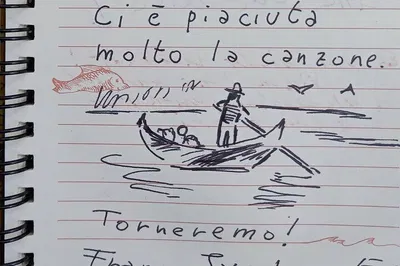 Ci è piaciuta
molto la canzone.
Torneremo!